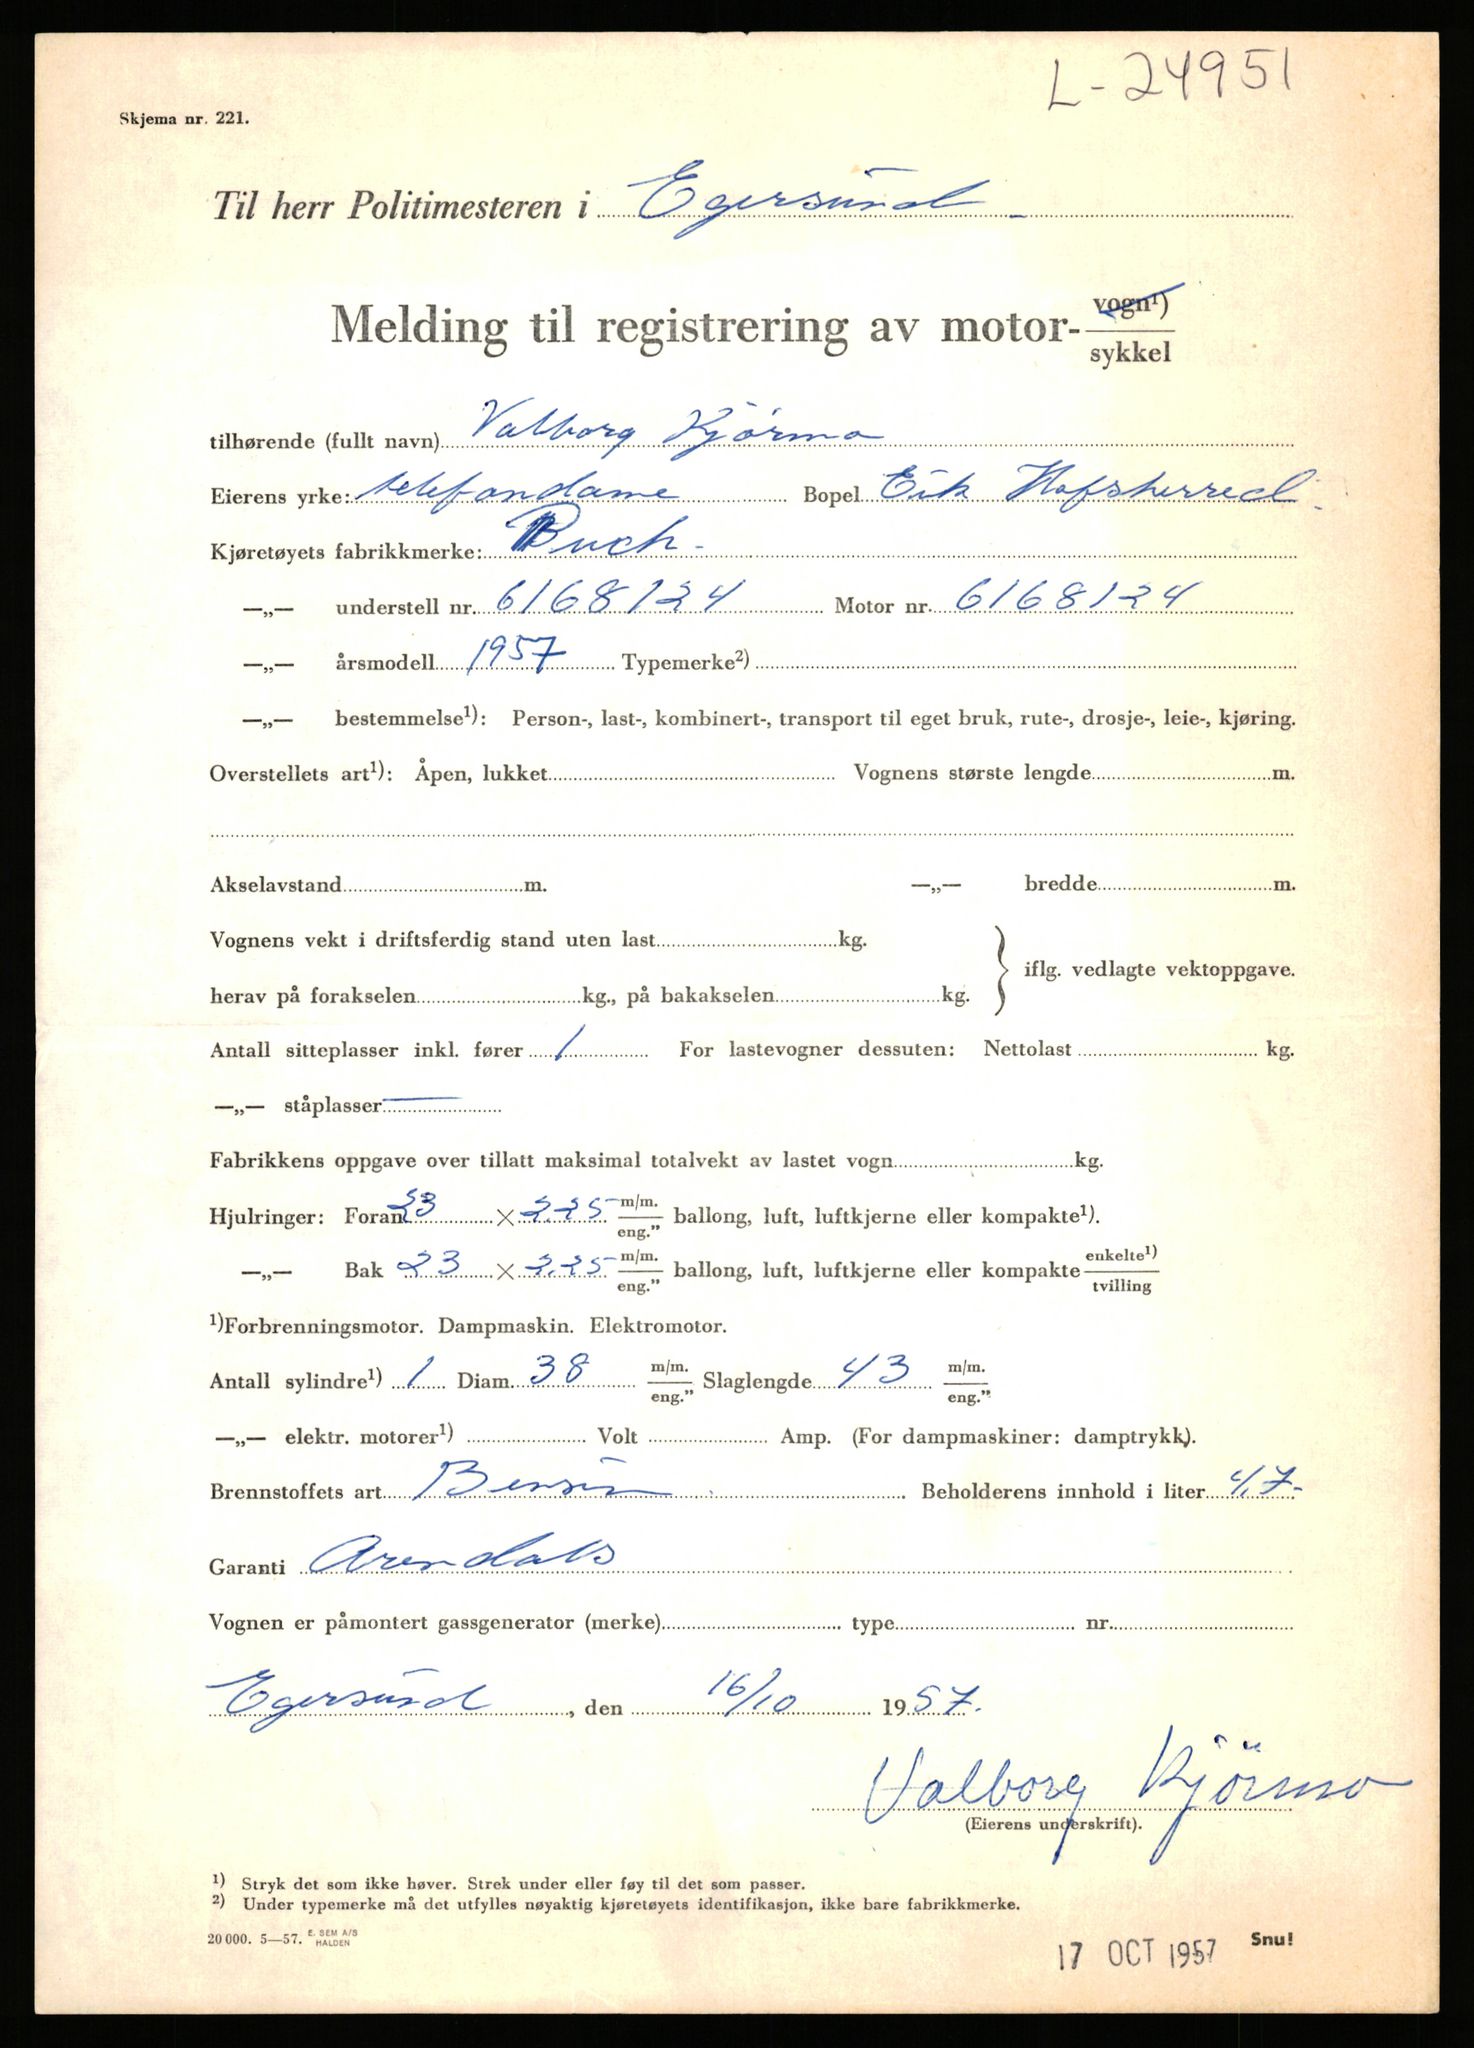 L-24951
Skjema nr. 221.
Til herr Politimesteren i Egersund
Melding til registrering av motor- vogn¹) sykkel
tilhørende (fullt navn) Valborg Kjørmo
Eierens yrke: telefondame Bopel Eik Hofsherred
Kjøretøyets fabrikkmerke: Puch
—„— understell nr. 6168124 Motor nr. 6168124
—„— årsmodell 1957 Typemerke²)
—„— bestemmelse¹): Person-, last-, kombinert-, transport til eget bruk, rute-, drosje-, leie-, kjøring.
Overstellets art¹): Åpen, lukket Vognens største lengde m.
Akselavstand m. —„— bredde m.
Vognens vekt i driftsferdig stand uten last kg.
iflg. vedlagte vektoppgave.
herav på forakselen kg., på bakakselen kg.
Antall sitteplasser inkl. fører 1 For lastevogner dessuten: Nettolast kg.
—„— ståplasser —
Fabrikkens oppgave over tillatt maksimal totalvekt av lastet vogn kg.
Hjulringer: Foran 23 × 2.25 m/m. eng.” ballong, luft, luftkjerne eller kompakte¹).
—„— Bak 23 × 2.25 m/m. eng.” ballong, luft, luftkjerne eller kompakte enkelte¹) tvilling
¹)Forbrenningsmotor. Dampmaskin. Elektromotor.
Antall sylindre¹) 1 Diam. 38 m/m. eng.” Slaglengde 43 m/m. eng.”
—„— elektr. motorer¹) Volt Amp. (For dampmaskiner: damptrykk).
Brennstoffets art Bensin Beholderens innhold i liter 4,7-
Garanti Arendals
Vognen er påmontert gassgenerator (merke) type nr.
Egersund, den 16/10 1957.
Valborg Kjörmo
(Eierens underskrift).
¹) Stryk det som ikke høver. Strek under eller føy til det som passer.
²) Under typemerke må det utfylles nøyaktig kjøretøyets identifikasjon, ikke bare fabrikkmerke.
20 000. 5—57. E. SEM A/S HALDEN
Snu!
17 OCT 1957